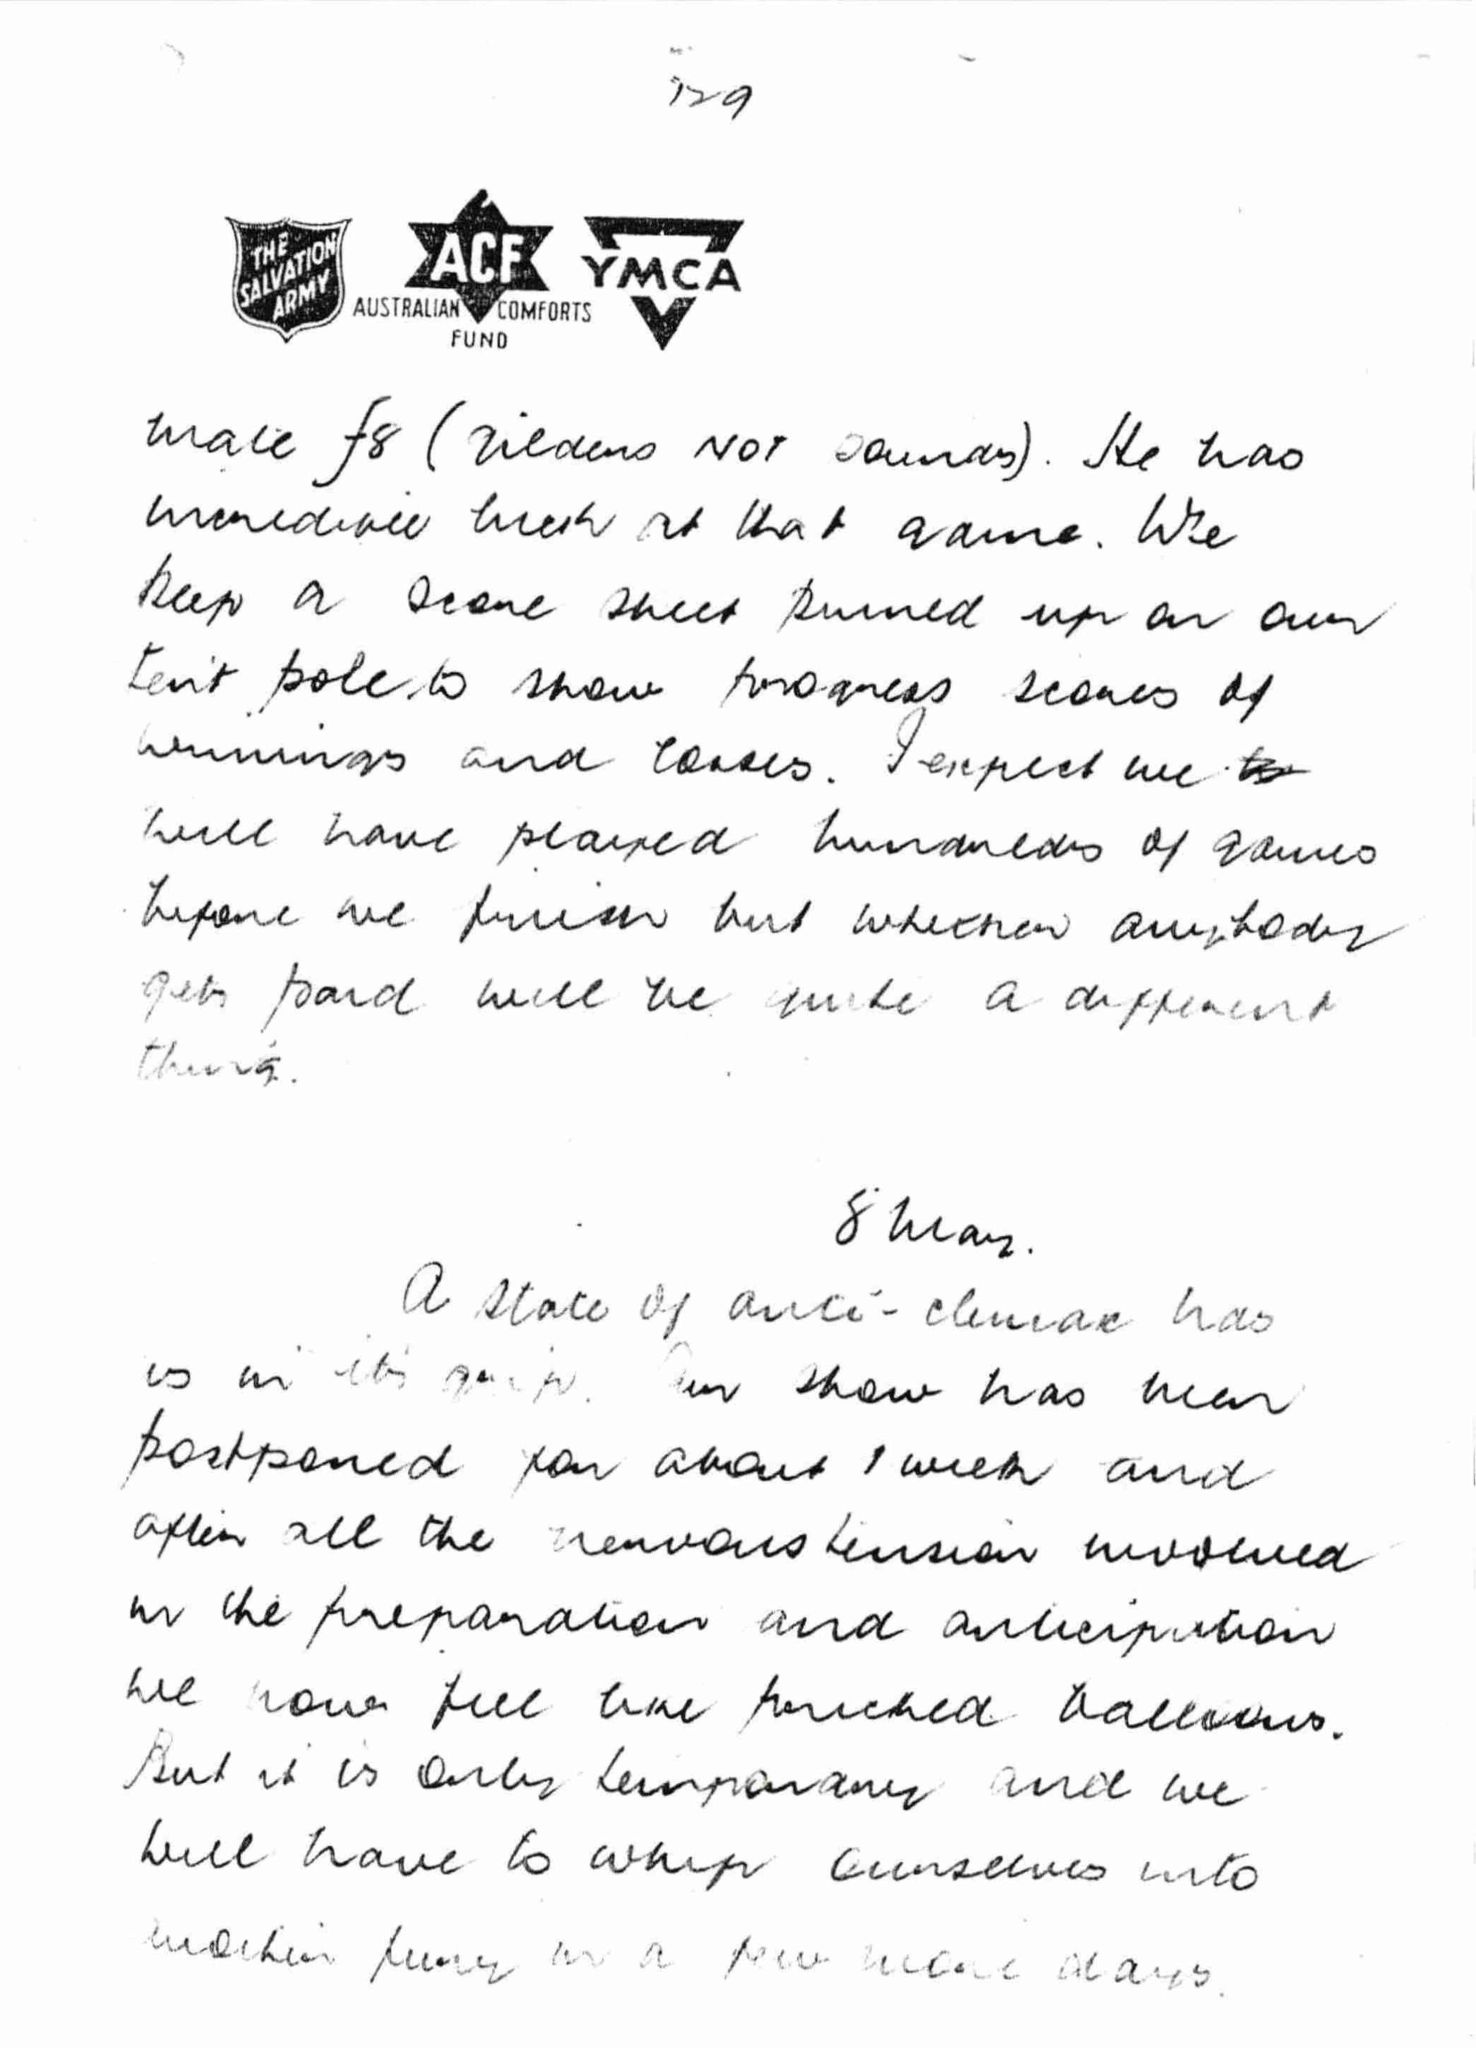 129
THE
SALVATION
ARMY
ACF
AUSTRALIAN COMFORTS
FUND
YMCA
male f8 (gilders NOT pounds). He has
incredible luck at that game. We
keep a score sheet pinned up on our
tent pole to show progress scores of
winnings and losses. I expect we to
will have played hundreds of games
before we finish but whether anybody
gets paid will be quite a different
thing.
8 May.
A state of anti-climax has
us in it's grip. Our show has been
postponed for about 1 week and
after all the nervous tension involved
in the preparation and anticipation
we now feel like pricked balloons.
But it is only temporary and we
will have to whip ourselves into
fury in a few more days.